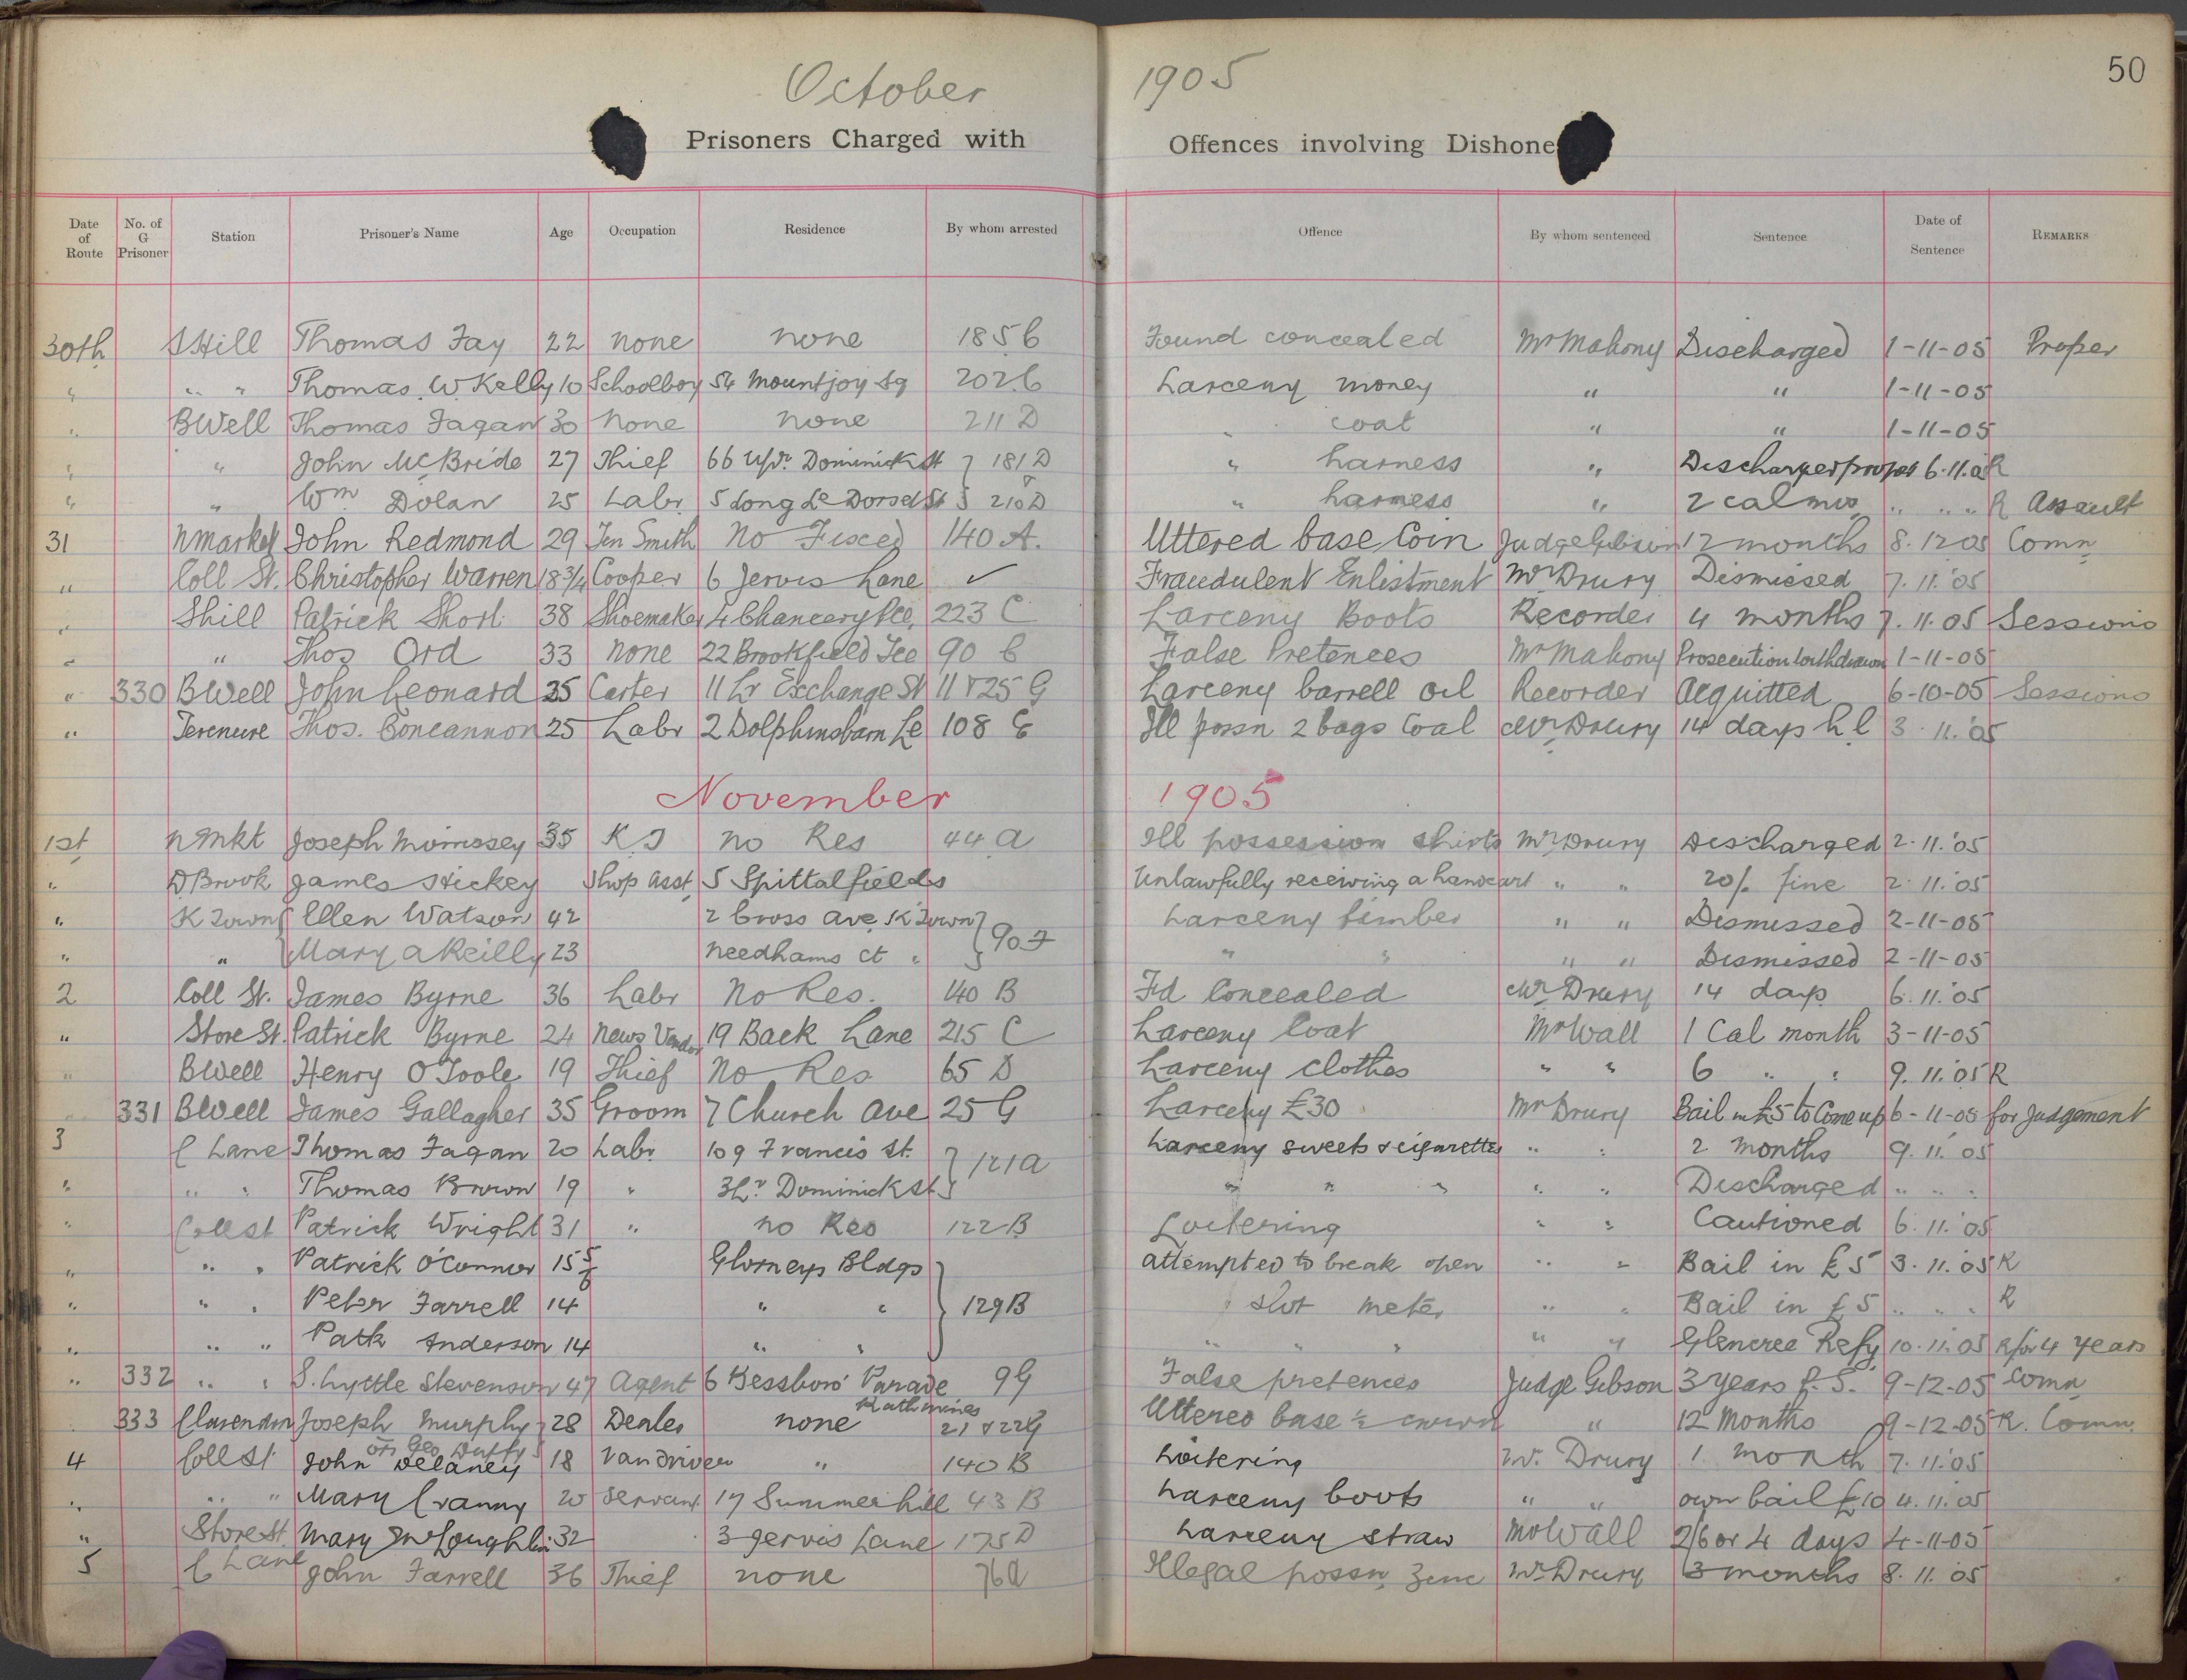 October 1905
50
Prisoners Charged with Offences involving Dishone
Date of Route No. of G Prisoner Station Prisoner's Name Age Occupation Residence By whom arrested Offence By whom sentenced Sentence Date of Sentence REMARKS
30th SHill Thomas Fay 22 none none 185 C Found concealed Mr Mahony Discharged 1-11-05 Proper
" " " Thomas. W. Kelly 10 Schoolboy 54 Mountjoy Sq 202 C Larceny money " " 1-11-05
" BWell Thomas Fagan 30 None none 211 D " coat " " 1-11-05
" " John McBride 27 Thief 66 Upr. Dominick St } 181 D " harness " Discharged proper 6.11.05 R
" " Wm Dolan 25 Labr 5 Long Le Dorset St } 210 D " harness " 2 cal mos " " " R Assault
31 Nmarket John Redmond 29 Tin Smith No Fixed 140 A. Uttered base Coin Judge Gibson 12 months 8.12.05 Comn
" Coll St. Christopher Warren 18 3/4 Cooper 6 Jervis Lane ✓ Fraudulent Enlistment Mr Drury Dismissed 7.11.'05
" Shill Patrick Short 38 Shoemaker 4 Chancery Plce, 223 C Larceny Boots Recorder 4 months 7.11.05 Sessions
" " Thos Ord 33 None 22 Brookfield Tce 90 C False Pretences Mr Mahony Prosecution Withdrawn 1-11-05
" 330 BWell John Leonard 35 Carter 11 Lr Exchange St 11 & 25 G Larceny barrell oil Recorder Acquitted 6-10-05 Sessions
" Terenure Thos. Concannon 25 Labr 2 Dolphinsbarn Le 108 E Ill possn 2 bags Coal Mr Drury 14 days h.l 3.11.'05
November 1905
1st N Mkt Joseph Morrissey 35 K.J no Res 44 A Ill possession shirts Mr Drury Discharged 2.11.'05
" D Brook James Hickey Shop Asst 5 Spittalfields Unlawfully receiving a handcart " " 20/- fine 2.11.'05
" K Town { Ellen Watson 42 2 Cross Ave, K Town } 90 F Larceny timber " " Dismissed 2-11-05
" " { Mary A Reilly 23 Needhams Ct " } " " " " Dismissed 2-11-05
2 Coll St. James Byrne 36 Labr No Res. 140 B Fd Concealed Mr Drury 14 days 6.11.'05
" Store St. Patrick Byrne 24 News Vendor 19 Back Lane 215 C Larceny Coat Mr Wall 1 Cal month 3-11-05
" BWell Henry O'Toole 19 Thief No Res 65 D Larceny clothes " " 6 " " 9.11.'05 R
" 331 BWell James Gallagher 35 Groom 7 Church Ave 25 G Larceny £30 Mr Drury Bail in £5 to Come up 6-11-05 for Judgement
3 C Lane Thomas Fagan 20 Labr. 109 Francis St. } 121 A Larceny sweets & cigarettes " " 2 months 9.11.'05
" " " Thomas Brown 19 " 3 Lr Dominick St } " " " " " Discharged " " "
" Coll St Patrick Wright 31 " no Res 122 B Loitering " " Cautioned 6.11.'05
" " " Patrick O'Connor 15 Glorneys Bldgs } attempted to break open " " Bail in £5 3.11.'05 R
" " " Peter Farrell 14 " " } 129 B slot meter " " Bail in £5 " " " R
" " " Patk Anderson 14 " " } " " " " " Glencree Refy 10.11.05 R for 4 years
" 332 " " S. Lyttle Stevenson 47 Agent 6 Bessboro' Parade Rathmines 9 G False pretences Judge Gibson 3 years P.S. 9-12-05 Comn
333 Clarendon Joseph Murphy 28 Dealer none 21 & 22 G Uttered base ½ crown " 12 Months 9-12-05 R. Comn.
or Geo Duffy
4 Coll St John Delaney 18 Van driver " 140 B Loitering Mr. Drury 1 month 7.11.'05
" " " Mary Cranny 20 Servant 17 Summerhill 43 B Larceny boots " " own bail £10 4.11.'05
" Store St. Mary McLoughlin 32 3 Jervis Lane 175 D Larceny straw Mr Wall 2/6 or 4 days 4-11-05
5 C Lane John Farrell 36 Thief none 76 A Illegal possn, Zinc Mr Drury 3 months 8.11.'05